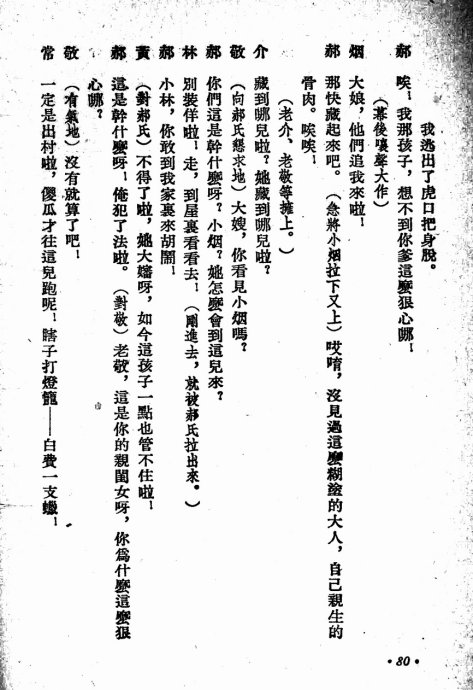 我逃出了虎口把身脫。
郝　唉！我那孩子，想不到你爹這麼狠心哪！
（幕後嚷聲大作）
烟　大娘，他們追我來啦！
郝　那快藏起來吧。（急將小烟拉下又上）哎唷，沒見過這麼糊塗的大人，自己親生的
骨肉。唉唉！
（老介、老敬等擁上。）
介　藏到哪兒啦？她藏到哪兒啦？
敬　（向郝氏懇求地）大嫂，你看見小烟嗎？
郝　你們這是幹什麼呀？小烟？她怎麼會到這兒來？
林　別裝佯啦！走，到屋裏看看去！（剛進去，就被郝氏拉出來。）
郝　小林，你敢到我家裏來胡鬧！
黃　（對郝氏）不得了啦，她大嬸呀，如今這孩子一點也管不住啦！
郝　這是幹什麼呀！俺犯了法啦。（對敬）老敬，這是你的親閨女呀，你爲什麼這麼狠
心哪？
敬　（有氣地）沒有就算了吧！
常　一定是出村啦，傻瓜才往這兒跑呢！瞎子打燈籠——白費一支蠟！
•80•